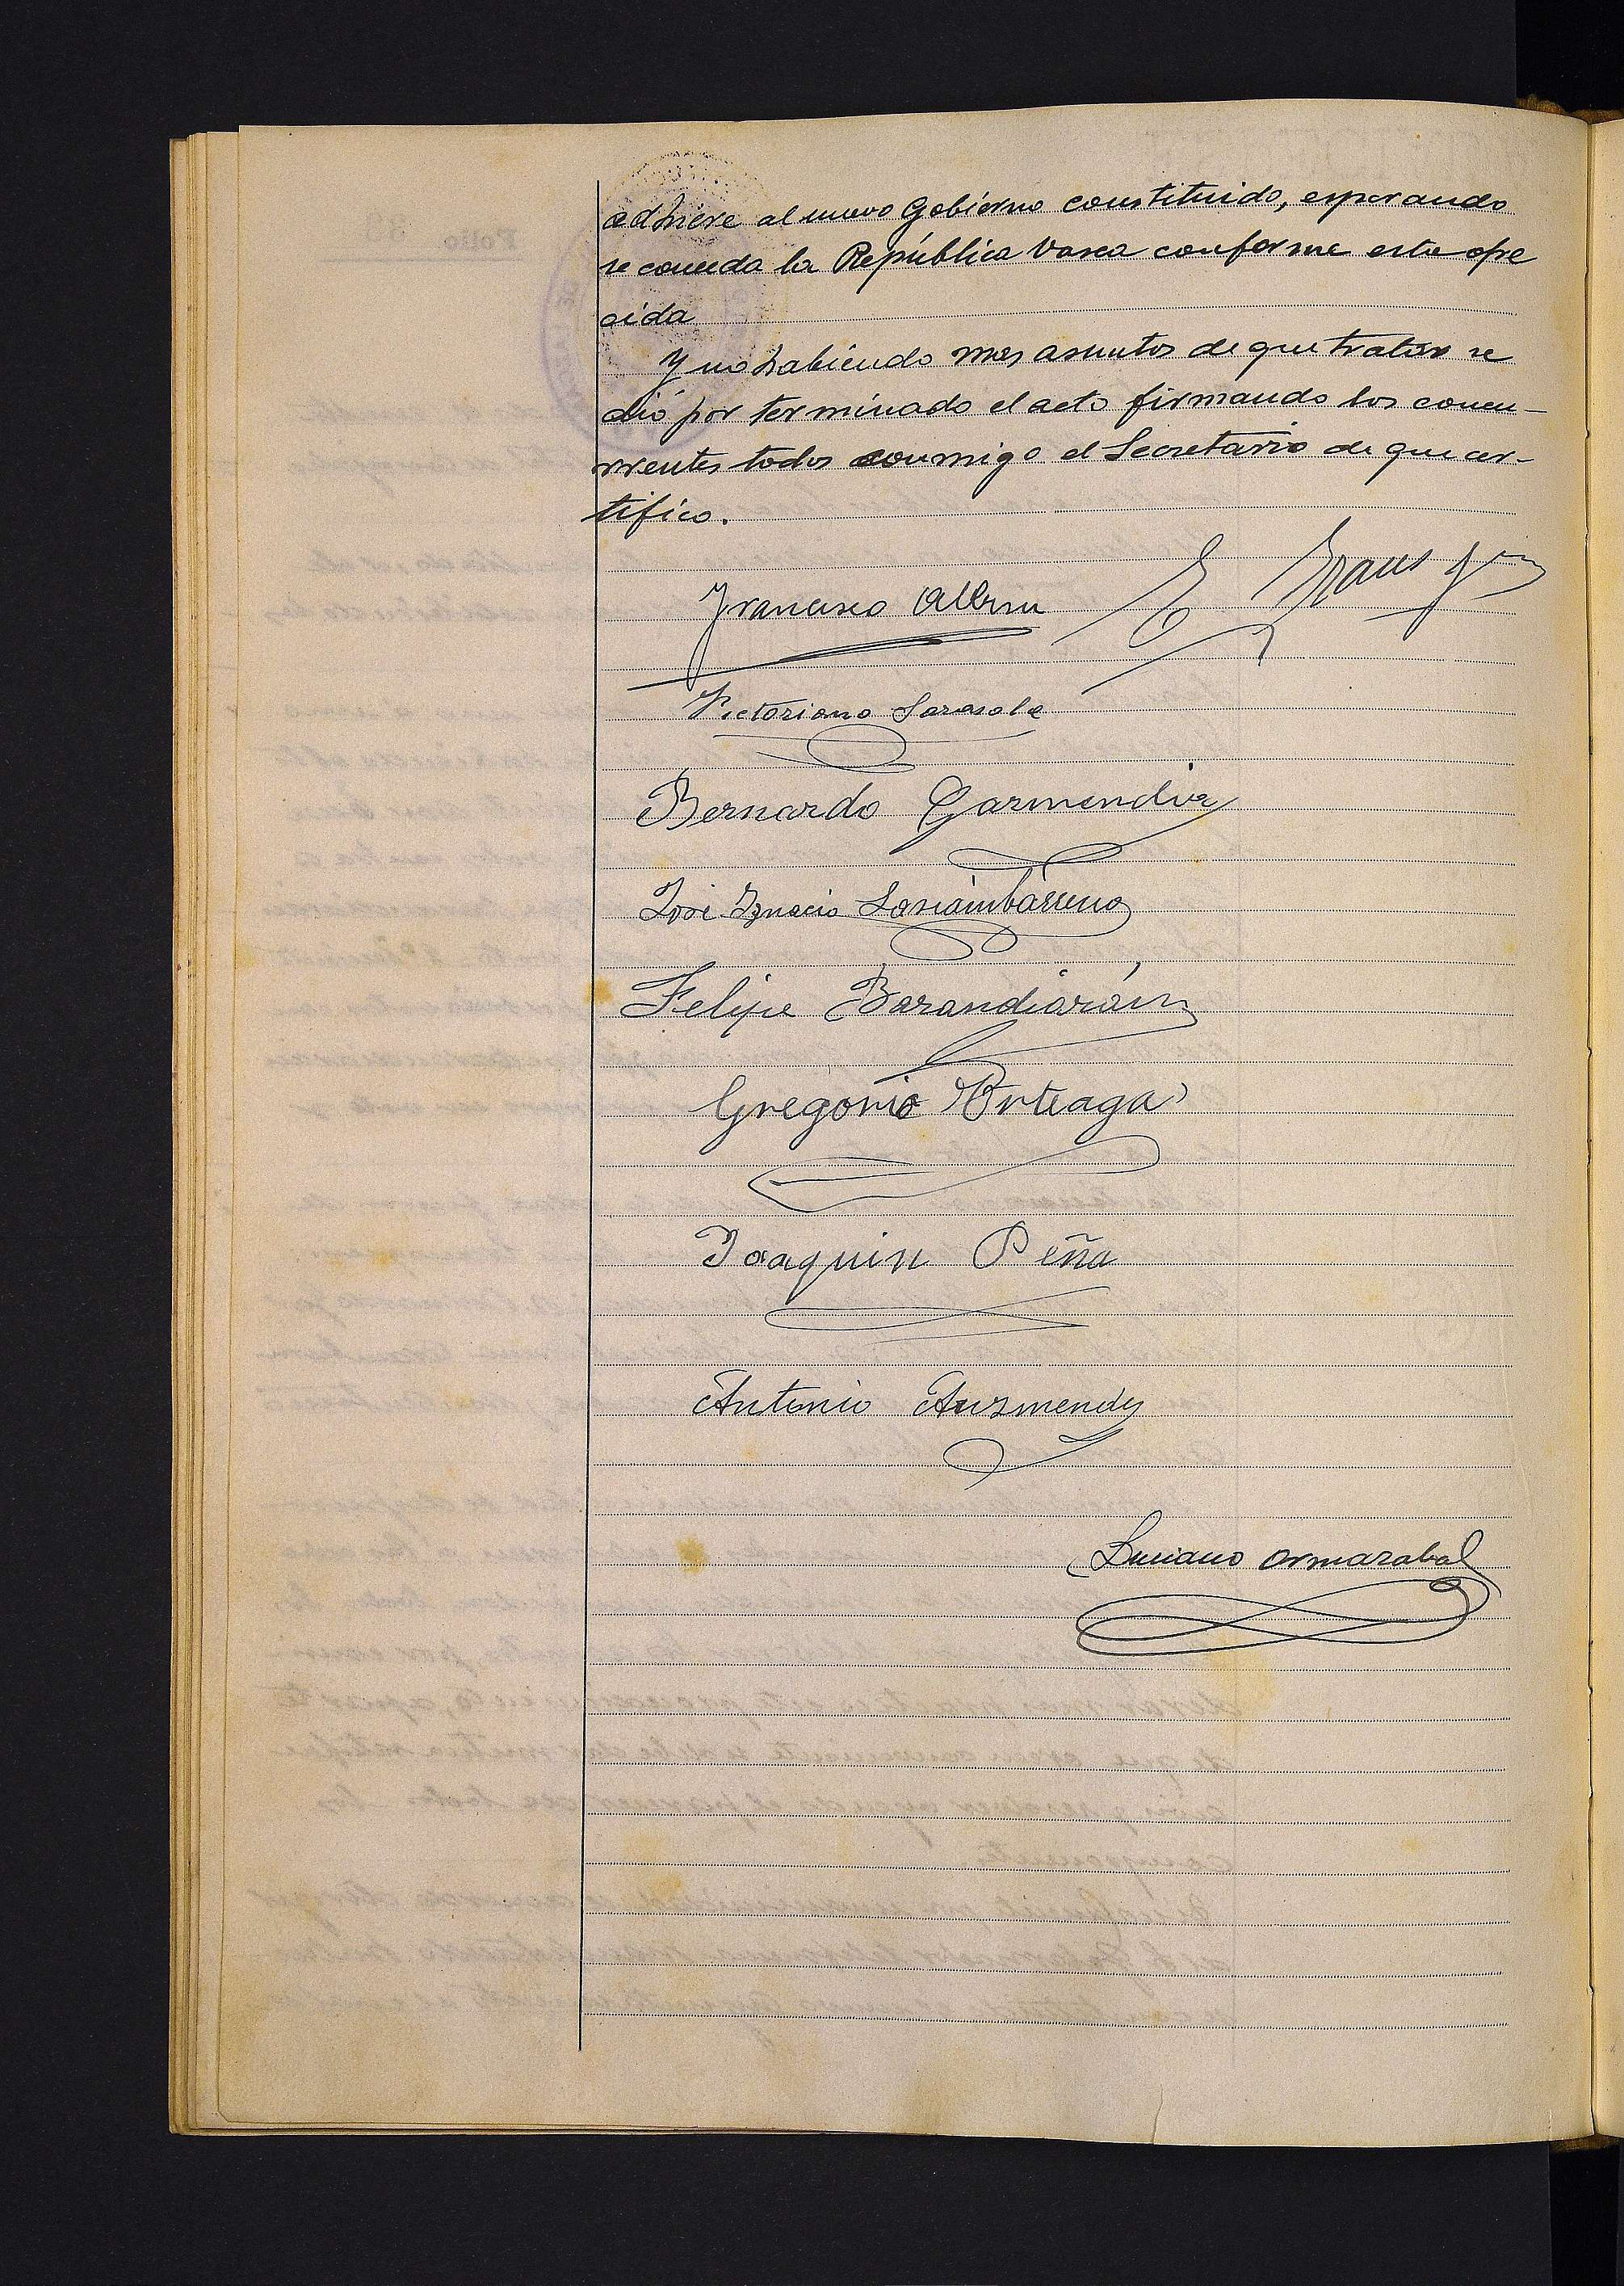 adhiere al nuevo Gobierno constituido, esperando
se conceda la República Vasca conforme esta ofre
cida
Y no habiendo mas asuntos de que tratar se
dió por terminado el acto firmando los concu-
rrentes todos conmigo el Secretario de que cer-
tifico.
Francisco Alberu
Victoriano Sarasola
Bernardo Garmendia
José Ignacio
Felipe Barandiarán
Gregorio Urteaga
Joaquin Peña
Antonio Auzmendy
Luciano Ormazabal